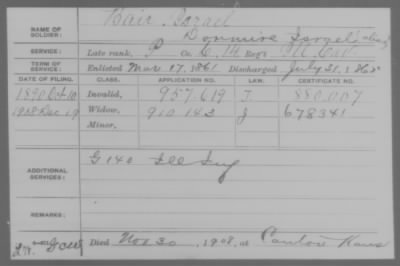 NAME OF SOLDIER: Bair, Israel
Dormire Israel alias
SERVICE: Late rank, P Co. C, 14 Reg't Ill Cav
TERM OF SERVICE: Enlisted Mar 17, 1861 Discharged July 31, 1865
DATE OF FILING. CLASS. APPLICATION NO. LAW. CERTIFICATE NO.
1890 Oct 10 Invalid, 957.619 J. 880.007
1908 Dec 19 Widow, 910 143 J 678341
Minor,
ADDITIONAL SERVICES: G 140 Ill Inf
REMARKS:
Died Nov 30, 1908, at Canton Kans